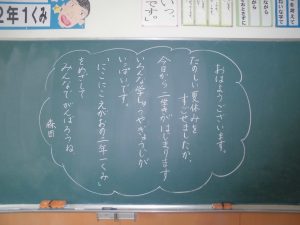 2年1くみ
おはようございます。
たのしい夏休みを
すごせましたか。
今日から二学きがはじまります
いろんな学しゅうやぎょうじが
いっぱいです。
"にこにこえがおの二年一くみ"
をめざして
みんなでがんばろうね
森田